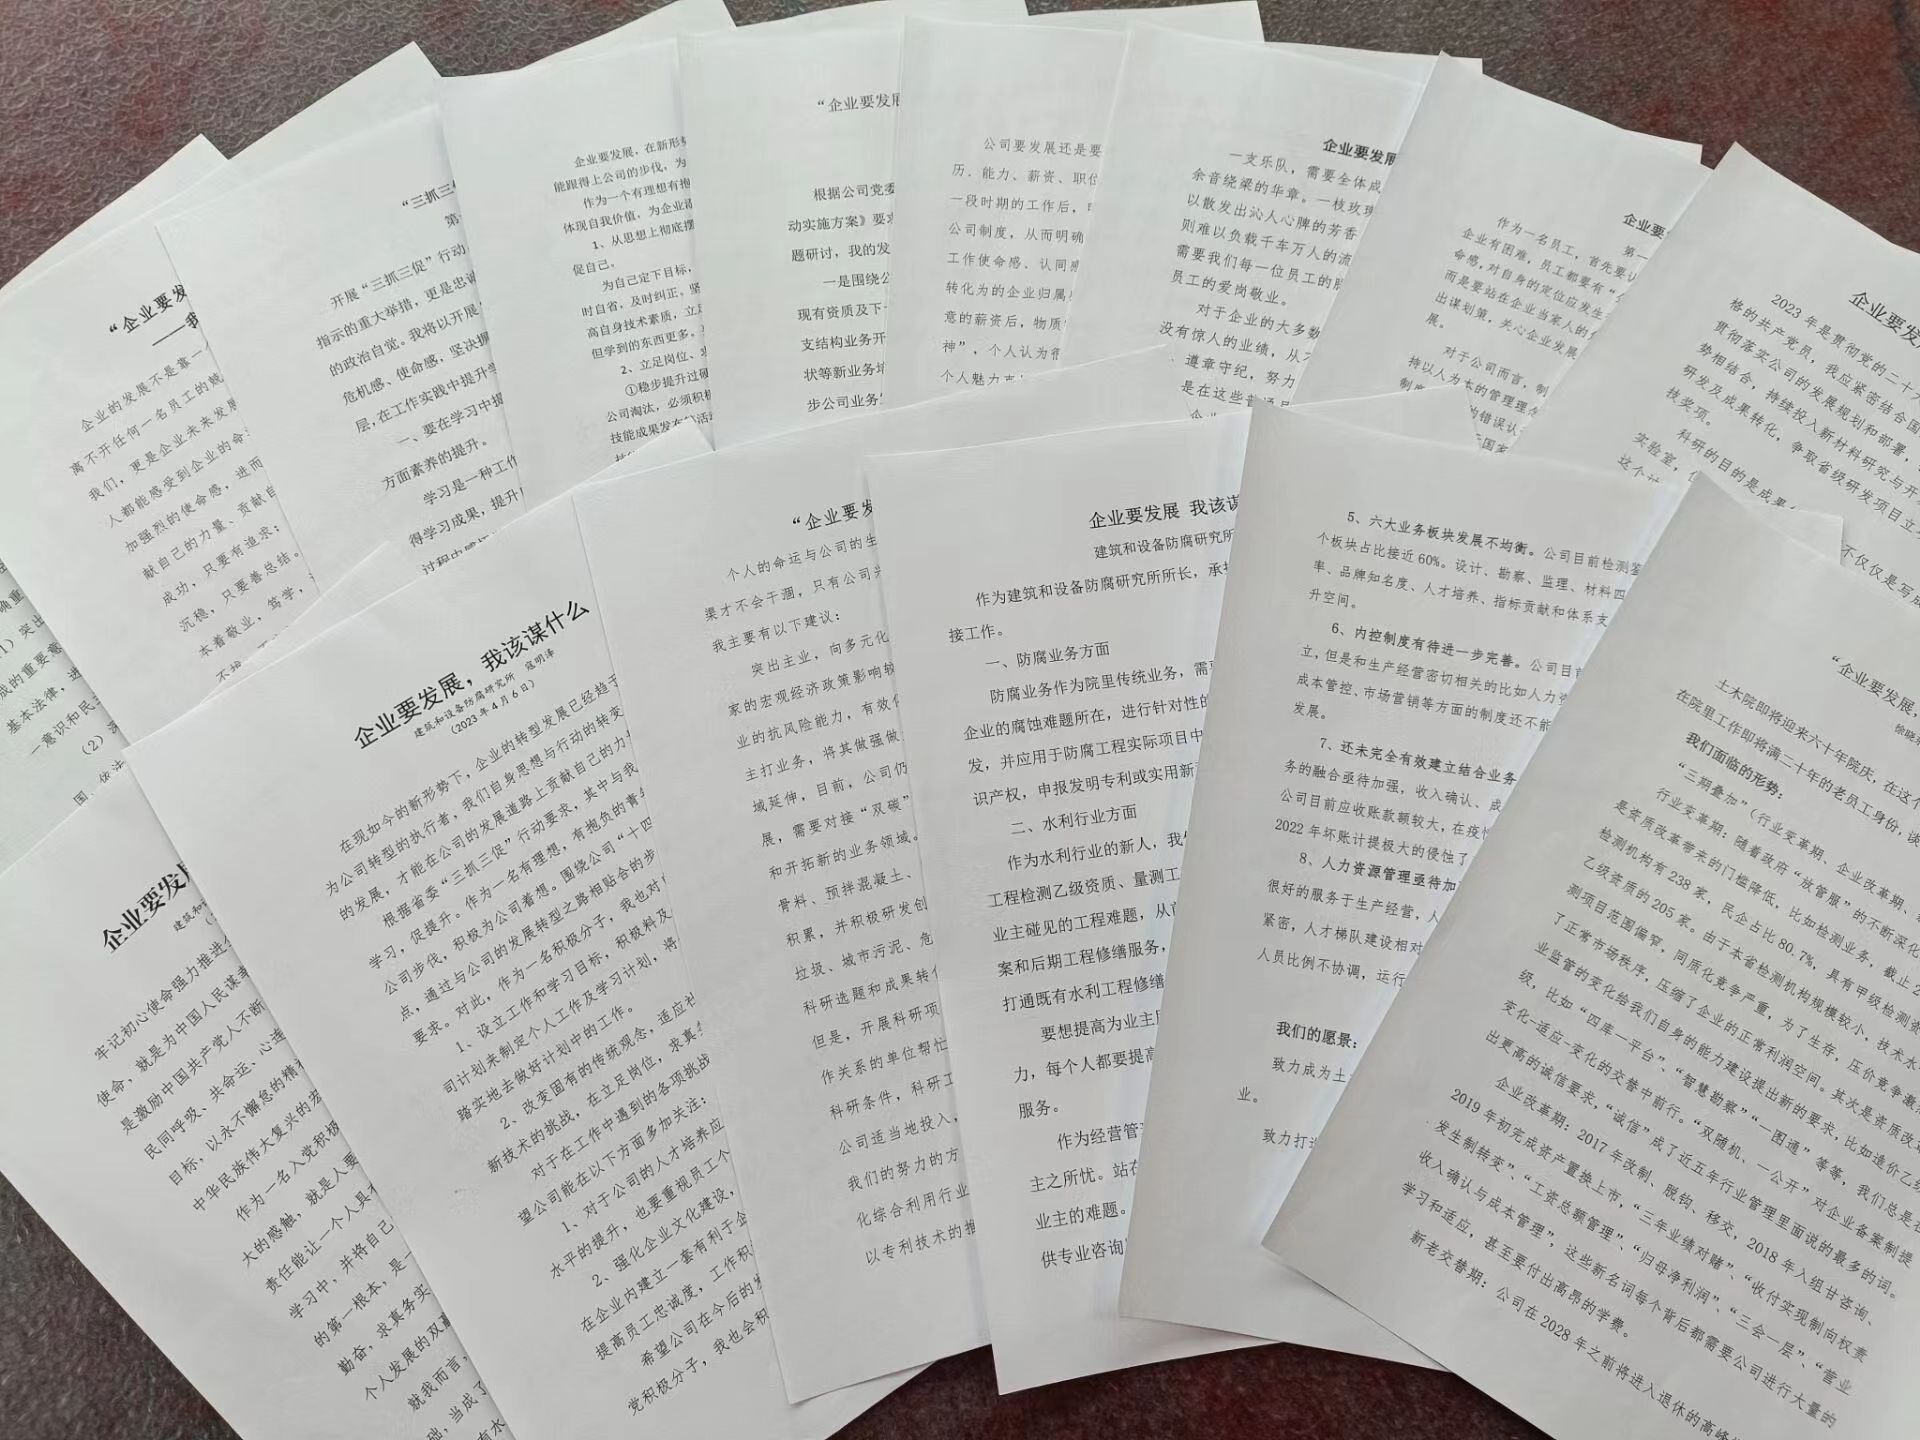 “企业要发
——我
企业的发展不是靠一
离不开任何一名员工的兢
我们，更是企业未来发展
人都能感受到企业的命
加强烈的使命感，进而
献自己的力量、贡献自
成功，只要有追求；
沉稳，只要善总结。
本着敬业，笃学，
“三抓三促
第
开展“三抓三促”行动
指示的重大举措，更是忠诚
的政治自觉。我将以开展
危机感、使命感，坚决摒
层，在工作实践中提升
一、要在学习中提
方面素养的提升。
学习是一种工作
得学习成果，提升
企业要发展，在新形势
能跟得上公司的步伐，为
作为一个有理想有抱
体现自我价值，为企业
1、从思想上彻底摆
促自己。
为自己定下目标，
时自省，及时纠正。坚
高自身技术素质，立足
但学到的东西更多。
2、立足岗位、求
①稳步提升过硬
公司淘汰，必须积极
技能成果发布会活动
“企业要发展
根据公司党委
动实施方案》要求
题研讨，我的发
一是围绕公
现有资质及下一
支结构业务开
状等新业务培
步公司业务
公司要发展还是要
历、能力、薪资、职位
一段时期的工作后，
公司制度，从而明确
工作使命感、认同感
转化为的企业归属
意的薪资后，物质
神”，个人认为很
个人魅力
企业要发展
一支乐队，需要全体成
余音绕梁的华章。一枝玫瑰
以散发出沁人心脾的芳香
则难以负载千车万人的流
需要我们每一位员工的
员工的爱岗敬业。
对于企业的大多数
没有惊人的业绩，从
遵章守纪，努力
是在这些普通
企业要发
第一
作为一名员工，首先要认
企业有困难，员工都要有“
命感，对自身的定位应发生
而是要站在企业当家人的
出谋划策，关心企业发展
展。
对于公司而言，制
持以人为本的管理理
的错误认
国家
企业要发
2023 年是贯彻党的二十大
格的共产党员，我应紧密结合国
贯彻落实公司的发展规划和部署，
势相结合，持续投入新材料研究与开
研发及成果转化，争取省级研发项目立
技奖项。
科研的目的是成果
实验室，
不仅仅是写成
成的重要意
基本法律，进
一意识和民
（2）深
企业要发展
建筑和
牢记初心使命强力推进
使命，就是为中国人民谋幸
是激励中国共产党人不断
民同呼吸、共命运、心连
目标，以永不懈怠的精神
中华民族伟大复兴的宏
作为一名入党积极
大的感触，就是人要
责任能让一个人具
学习中，并将自己
的第一根本，是一
勤奋，求真务实
个人发展的双赢
就我而言，
础，当成了
企业要发展，我该谋什么
建筑和设备防腐研究所 寇明泽
（2023 年 4 月 6 日）
在现如今的新形势下，企业的转型发展已经趋于
为公司转型的执行者，我们自身思想与行动的转变
的发展，才能在公司的发展道路上贡献自己的力
根据省委“三抓三促”行动要求，其中与我
学习，促提升。作为一名有理想，有抱负的青年
公司步伐，积极为公司着想。围绕公司“十四
点，通过与公司的发展转型之路相贴合的步
要求。对此，作为一名积极分子，我也对
1、设立工作和学习目标，积极料及
司计划来制定个人工作及学习计划，将
踏实地去做好计划中的工作。
2、改变固有的传统观念，适应社
新技术的挑战，在立足岗位，求真
对于在工作中遇到的各项挑战
望公司能在以下方面多加关注：
1、对于公司的人才培养应
水平的提升，也要重视员工个
2、强化企业文化建设，
在企业内建立一套有利于企
提高员工忠诚度，工作积
希望公司在今后的发
党积极分子，我也会积
“企业要发
个人的命运与公司的生
渠才不会干涸，只有公司兴
我主要有以下建议：
突出主业，向多元化
家的宏观经济政策影响较
业的抗风险能力，有效
主打业务，将其做强做
域延伸，目前，公司仍
展，需要对接“双碳”
和开拓新的业务领域。
骨料、预拌混凝土、
积累，并积极研发创
垃圾、城市污泥、危
科研选题和成果转化
但是，开展科研项
作关系的单位帮忙
科研条件，科研工
公司适当地投入，
我们的努力的方
化综合利用行业
以专利技术的推
企业要发展 我该谋
建筑和设备防腐研究所
作为建筑和设备防腐研究所所长，承担
接工作。
一、防腐业务方面
防腐业务作为院里传统业务，需要
企业的腐蚀难题所在，进行针对性的
发，并应用于防腐工程实际项目中
识产权，申报发明专利或实用新
二、水利行业方面
作为水利行业的新人，我
工程检测乙级资质、量测工
业主碰见的工程难题，从前
案和后期工程修缮服务，
打通既有水利工程修缮
要想提高为业主
力，每个人都要提高
服务。
作为经营管
主之所忧。站在
业主的难题。
供专业咨询
5、六大业务板块发展不均衡。公司目前检测鉴
个板块占比接近 60%。设计、勘察、监理、材料四
率、品牌知名度、人才培养、指标贡献和体系支
升空间。
6、内控制度有待进一步完善。公司目前
立，但是和生产经营密切相关的比如人力资
成本管控、市场营销等方面的制度还不能
发展。
7、还未完全有效建立结合业务
务的融合亟待加强，收入确认、成
公司目前应收账款额较大，在疫情
2022 年坏账计提极大的侵蚀了
8、人力资源管理亟待加
很好的服务于生产经营，人
紧密，人才梯队建设相对
人员比例不协调，运行
我们的愿景：
致力成为土
业。
致力打造
“企业要发展，
徐晓
土木院即将迎来六十年院庆，在这个
在院里工作即将满二十年的老员工身份，谈
我们面临的形势：
“三期叠加”（行业变革期、企业改革期、
行业变革期：随着政府“放管服”的不断深化
是资质改革带来的门槛降低，比如检测业务，截止 2
检测机构有 238 家，民企占比 80.7%，具有甲级检测资
乙级资质的 205 家。由于本省检测机构规模较小，技术水
测项目范围偏窄，同质化竞争严重，为了生存，压价竞争激
了正常市场秩序，压缩了企业的正常利润空间。其次是资质改
业监管的变化给我们自身的能力建设提出新的要求，比如造价乙级
级，比如“四库一平台”、“智慧勘察”“一图通”等等，我们总是在
变化-适应-变化的交替中前行。“双随机、一公开”对企业备案制提
出更高的诚信要求，“诚信”成了近五年行业管理里面说的最多的词。
企业改革期：2017 年改制、脱钩、移交，2018 年入组甘咨询、
2019 年初完成资产置换上市，“三年业绩对赌”、“收付实现制向权责
发生制转变”、“工资总额管理”、“归母净利润”、“三会一层”、“营业
收入确认与成本管理”，这些新名词每个背后都需要公司进行大量的
学习和适应，甚至要付出高昂的学费。
新老交替期：公司在 2028 年之前将进入退休的高峰